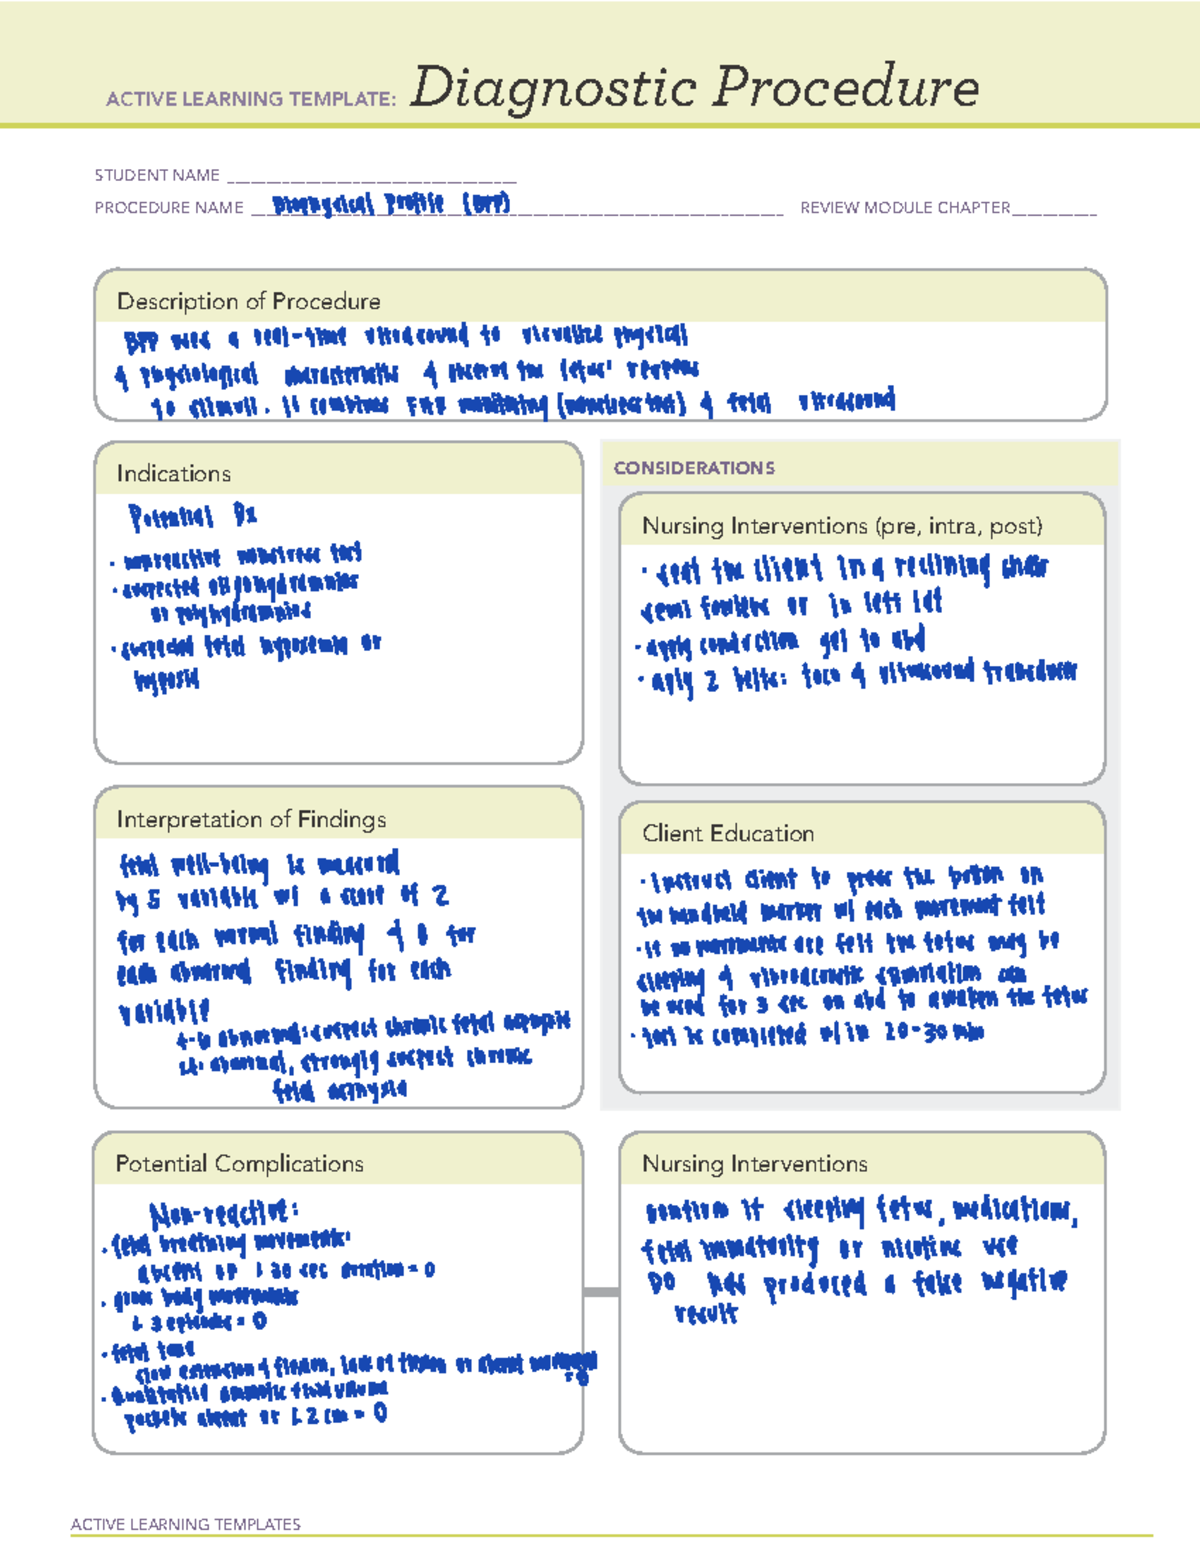 ACTIVE LEARNING TEMPLATE: Diagnostic Procedure
STUDENT NAME
PROCEDURE NAME Biophysical Profile (BPP)
REVIEW MODULE CHAPTER
Description of Procedure
BPP uses a real-time ultrasound to visualize physical
& physiological characteristics & observe the fetus' response
to stimuli. It combines FHR monitoring (nonstress test) & fetal ultrasound
Indications
Potential Dx
· nonreactive nonstress test
· suspected oligohydramnios
or polyhydramnios
· suspected fetal hypoxemia or
hypoxia
CONSIDERATIONS
Nursing Interventions (pre, intra, post)
· seat the client in a reclining chair
semi fowlers or in left lat
· apply conduction gel to abd
· aply 2 belts: toco & ultrasound transducer
Interpretation of Findings
fetal well-being is measured
by 5 variable w/ a score of 2
for each normal finding & 0 for
each abnormal finding for each
variable
4-6 abnormal: suspect chronic fetal
<4: abnormal, strongly suspect chronic
fetal
Client Education
· instruct client to press the button on
the handheld marker w/ each movement felt
· if no movements are felt the fetus may be
sleeping & vibroacoustic stimulation can
be used for 3 sec on abd to awaken the fetus
· test is completed w/in 20-30 min
Potential Complications
Non-reactive:
· fetal breathing movements:
absent or < 30 sec duration = 0
· gross body movements
< 3 episodes = 0
· fetal tone
slow extension & flexion, lack of flexion or absent movement
= 0
· Qualitative amniotic fluid volume
pockets absent or < 2 cm = 0
Nursing Interventions
confirm if sleeping fetus, medications,
fetal immaturity or nicotine use
DO produced a false negative
result
ACTIVE LEARNING TEMPLATES